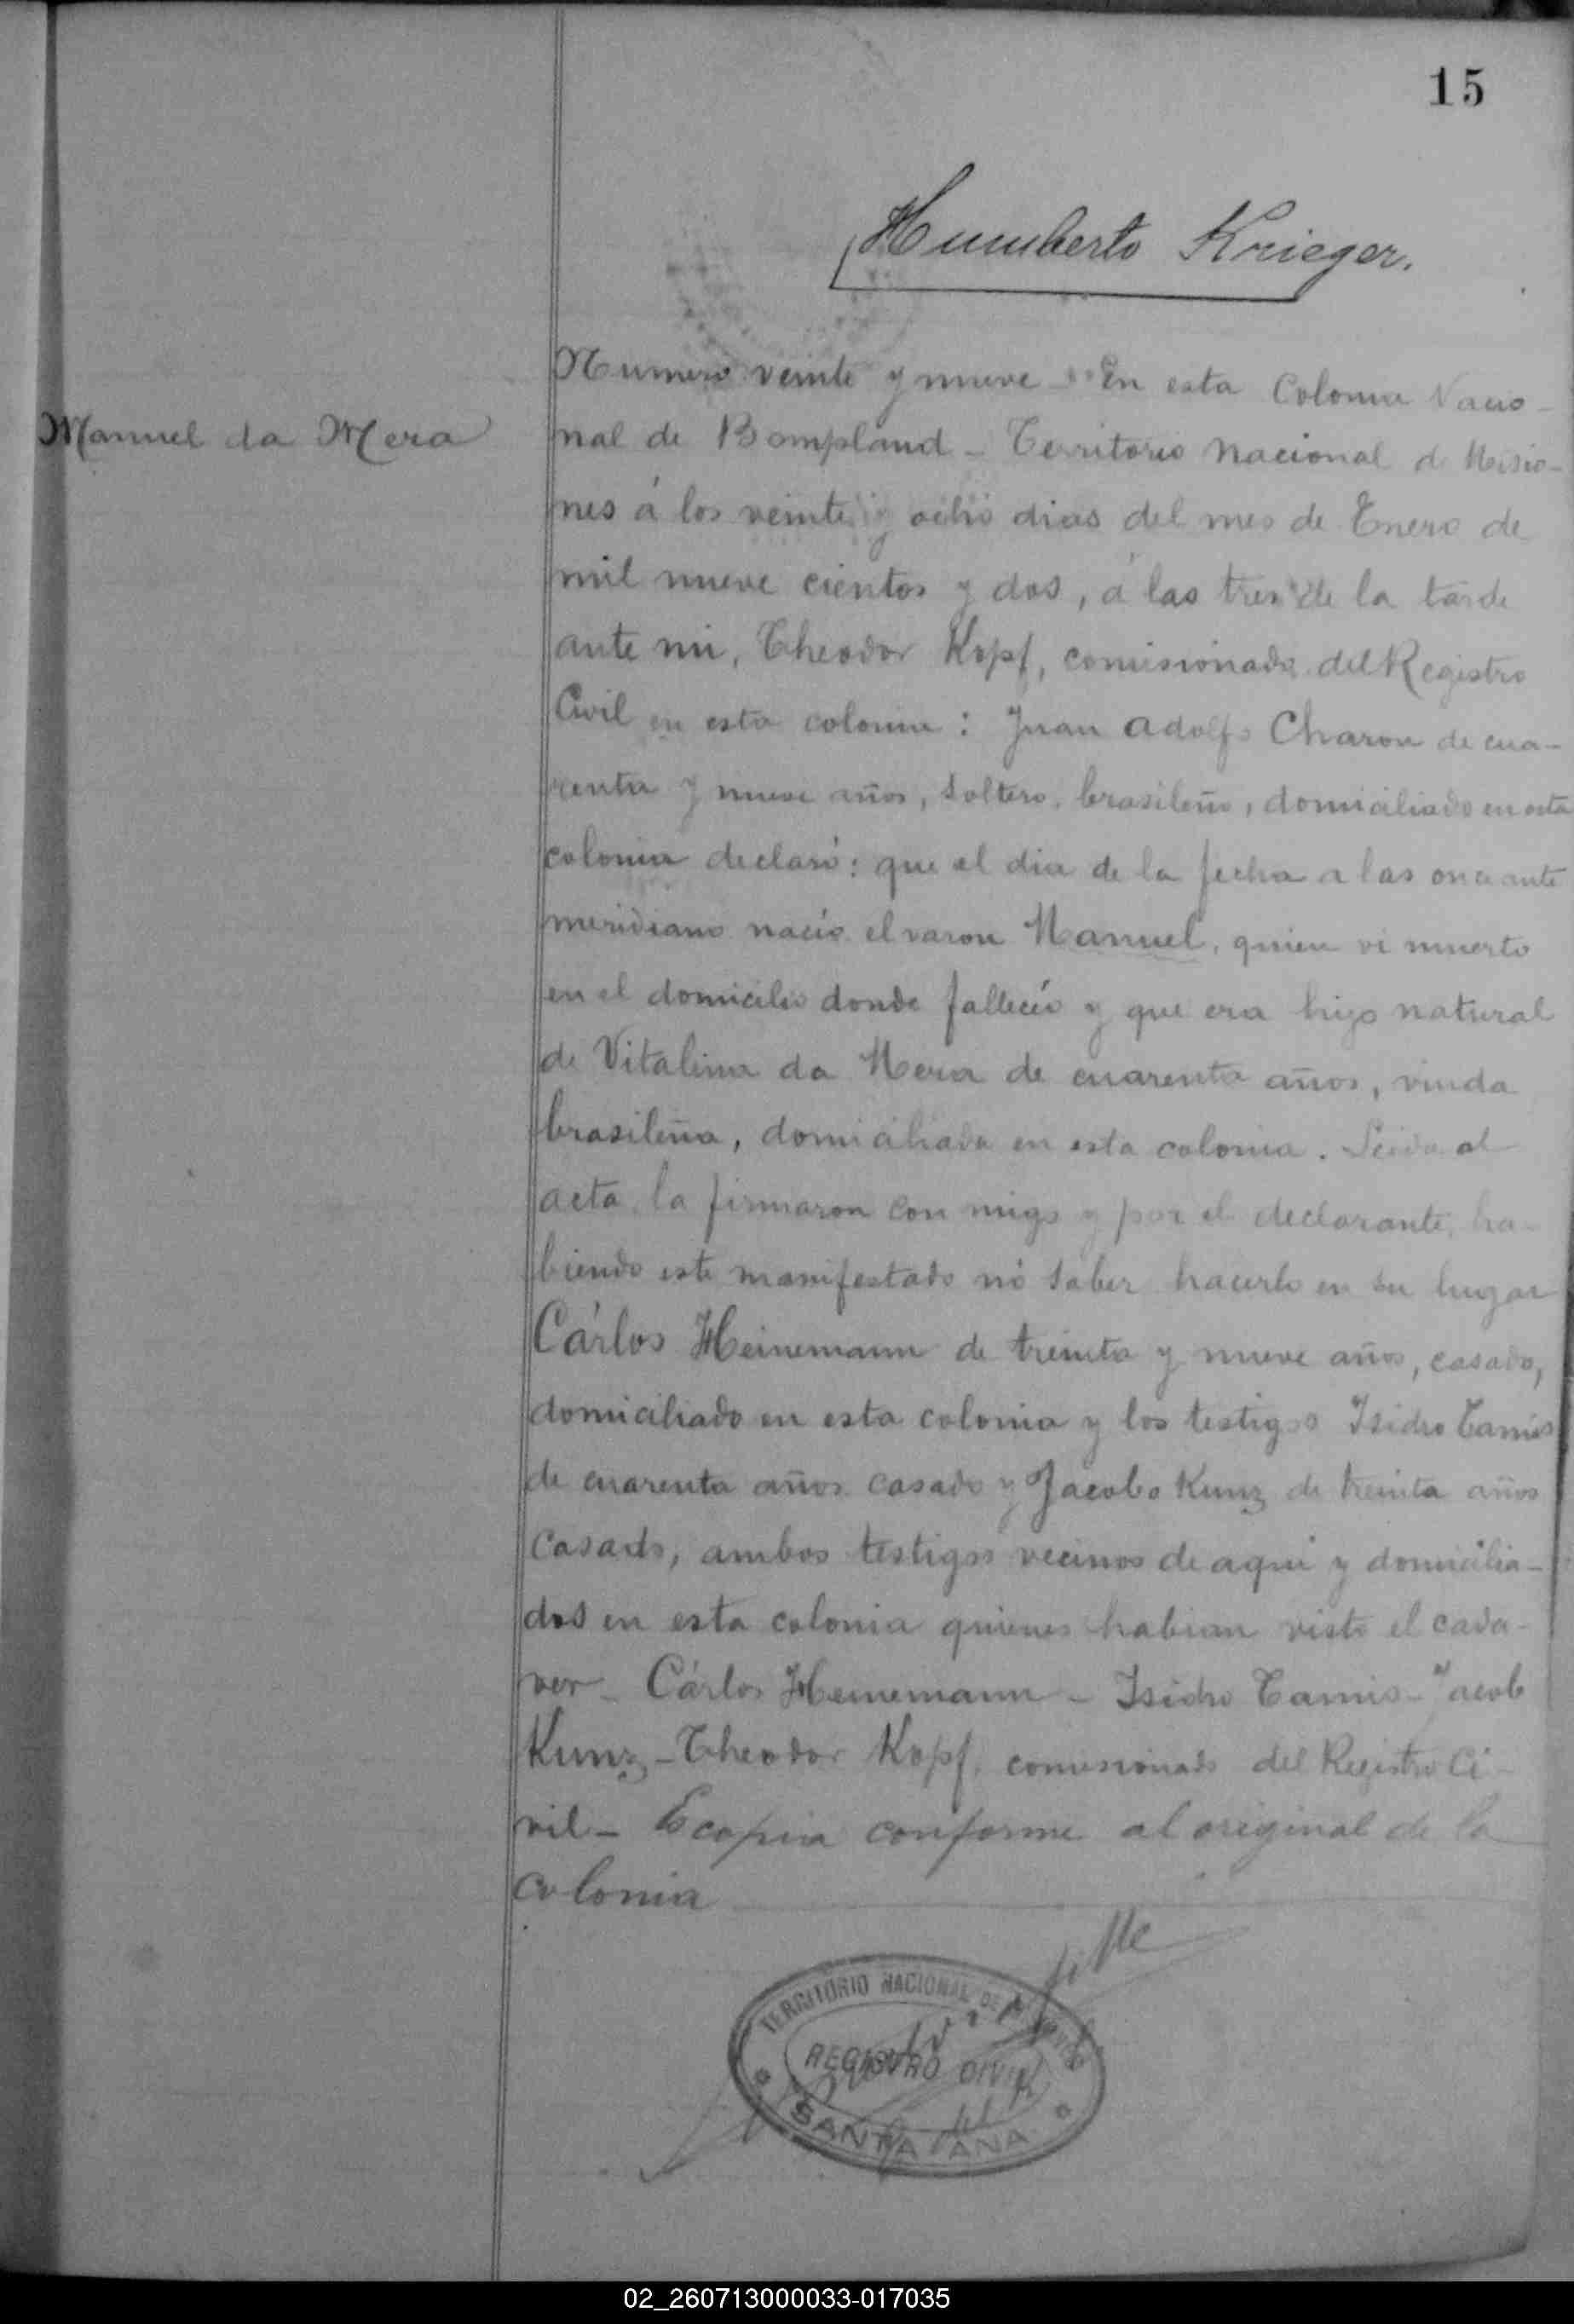 15
Humberto Krieger.
Manuel da Mera
Numero veinte y nueve - En esta Colonia Nacio-
nal de Bompland - Territorio Nacional de Misio-
nes á los veinte y ocho dias del mes de Enero de
mil nueve cientos y dos, á las tres de la tarde
ante mi, Theodor Kopf, comisionado del Registro
Civil en esta colonia : Juan Adolfo Charon de cua-
renta y nueve años, soltero, brasileño, domiciliado en esta
colonia declaró : que el dia de la fecha a las once ante
meridiano nació el varon Manuel, quien vi muerto
en el domicilio donde falleció y que era hijo natural
de Vitalina da Mera de cuarenta años, viuda
brasileña, domiciliada en esta colonia. Leida al
acta, la firmaron con migo y por el declarante, ha-
biendo este manifestado nó saber hacerlo en su lugar
Cárlos Heinemann de treinta y nueve años, casado,
domiciliado en esta colonia y los testigos Isidro Tamis
de cuarenta años casado y Jacobo Kunz de treinta años
casado, ambos testigos vecinos de aqui y domicilia-
dos en esta colonia quienes habian visto el cada-
ver - Cárlos Heinemann - Isidro Tamis - Jacob
Kunz - Theodor Kopf, comisionado del Registro Ci-
vil - Es copia conforme al original de la
colonia
TERRITORIO NACIONAL DE MISIONES
REGISTRO CIVIL
SANTA ANA
02_260713000033-017035